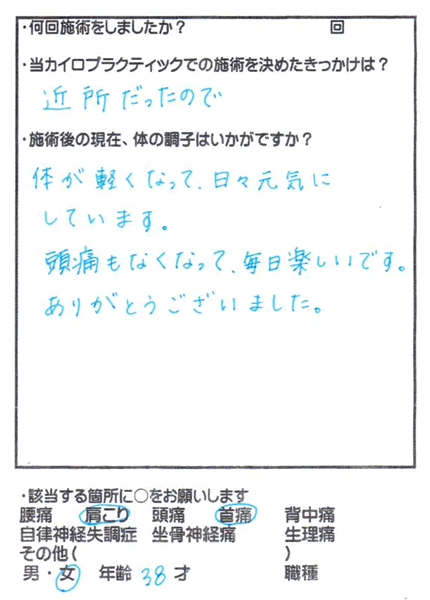 ・何回施術をしましたか？ 回
・当カイロプラクティックでの施術を決めたきっかけは？
近所だったので
・施術後の現在、体の調子はいかがですか？
体が軽くなって、日々元気に
しています。
頭痛もなくなって、毎日楽しいです。
ありがとうございました。
・該当する箇所に○をお願いします
腰痛 肩こり 頭痛 首痛 背中痛
自律神経失調症 坐骨神経痛 生理痛
その他( )
男・女 年齢 38 才 職種